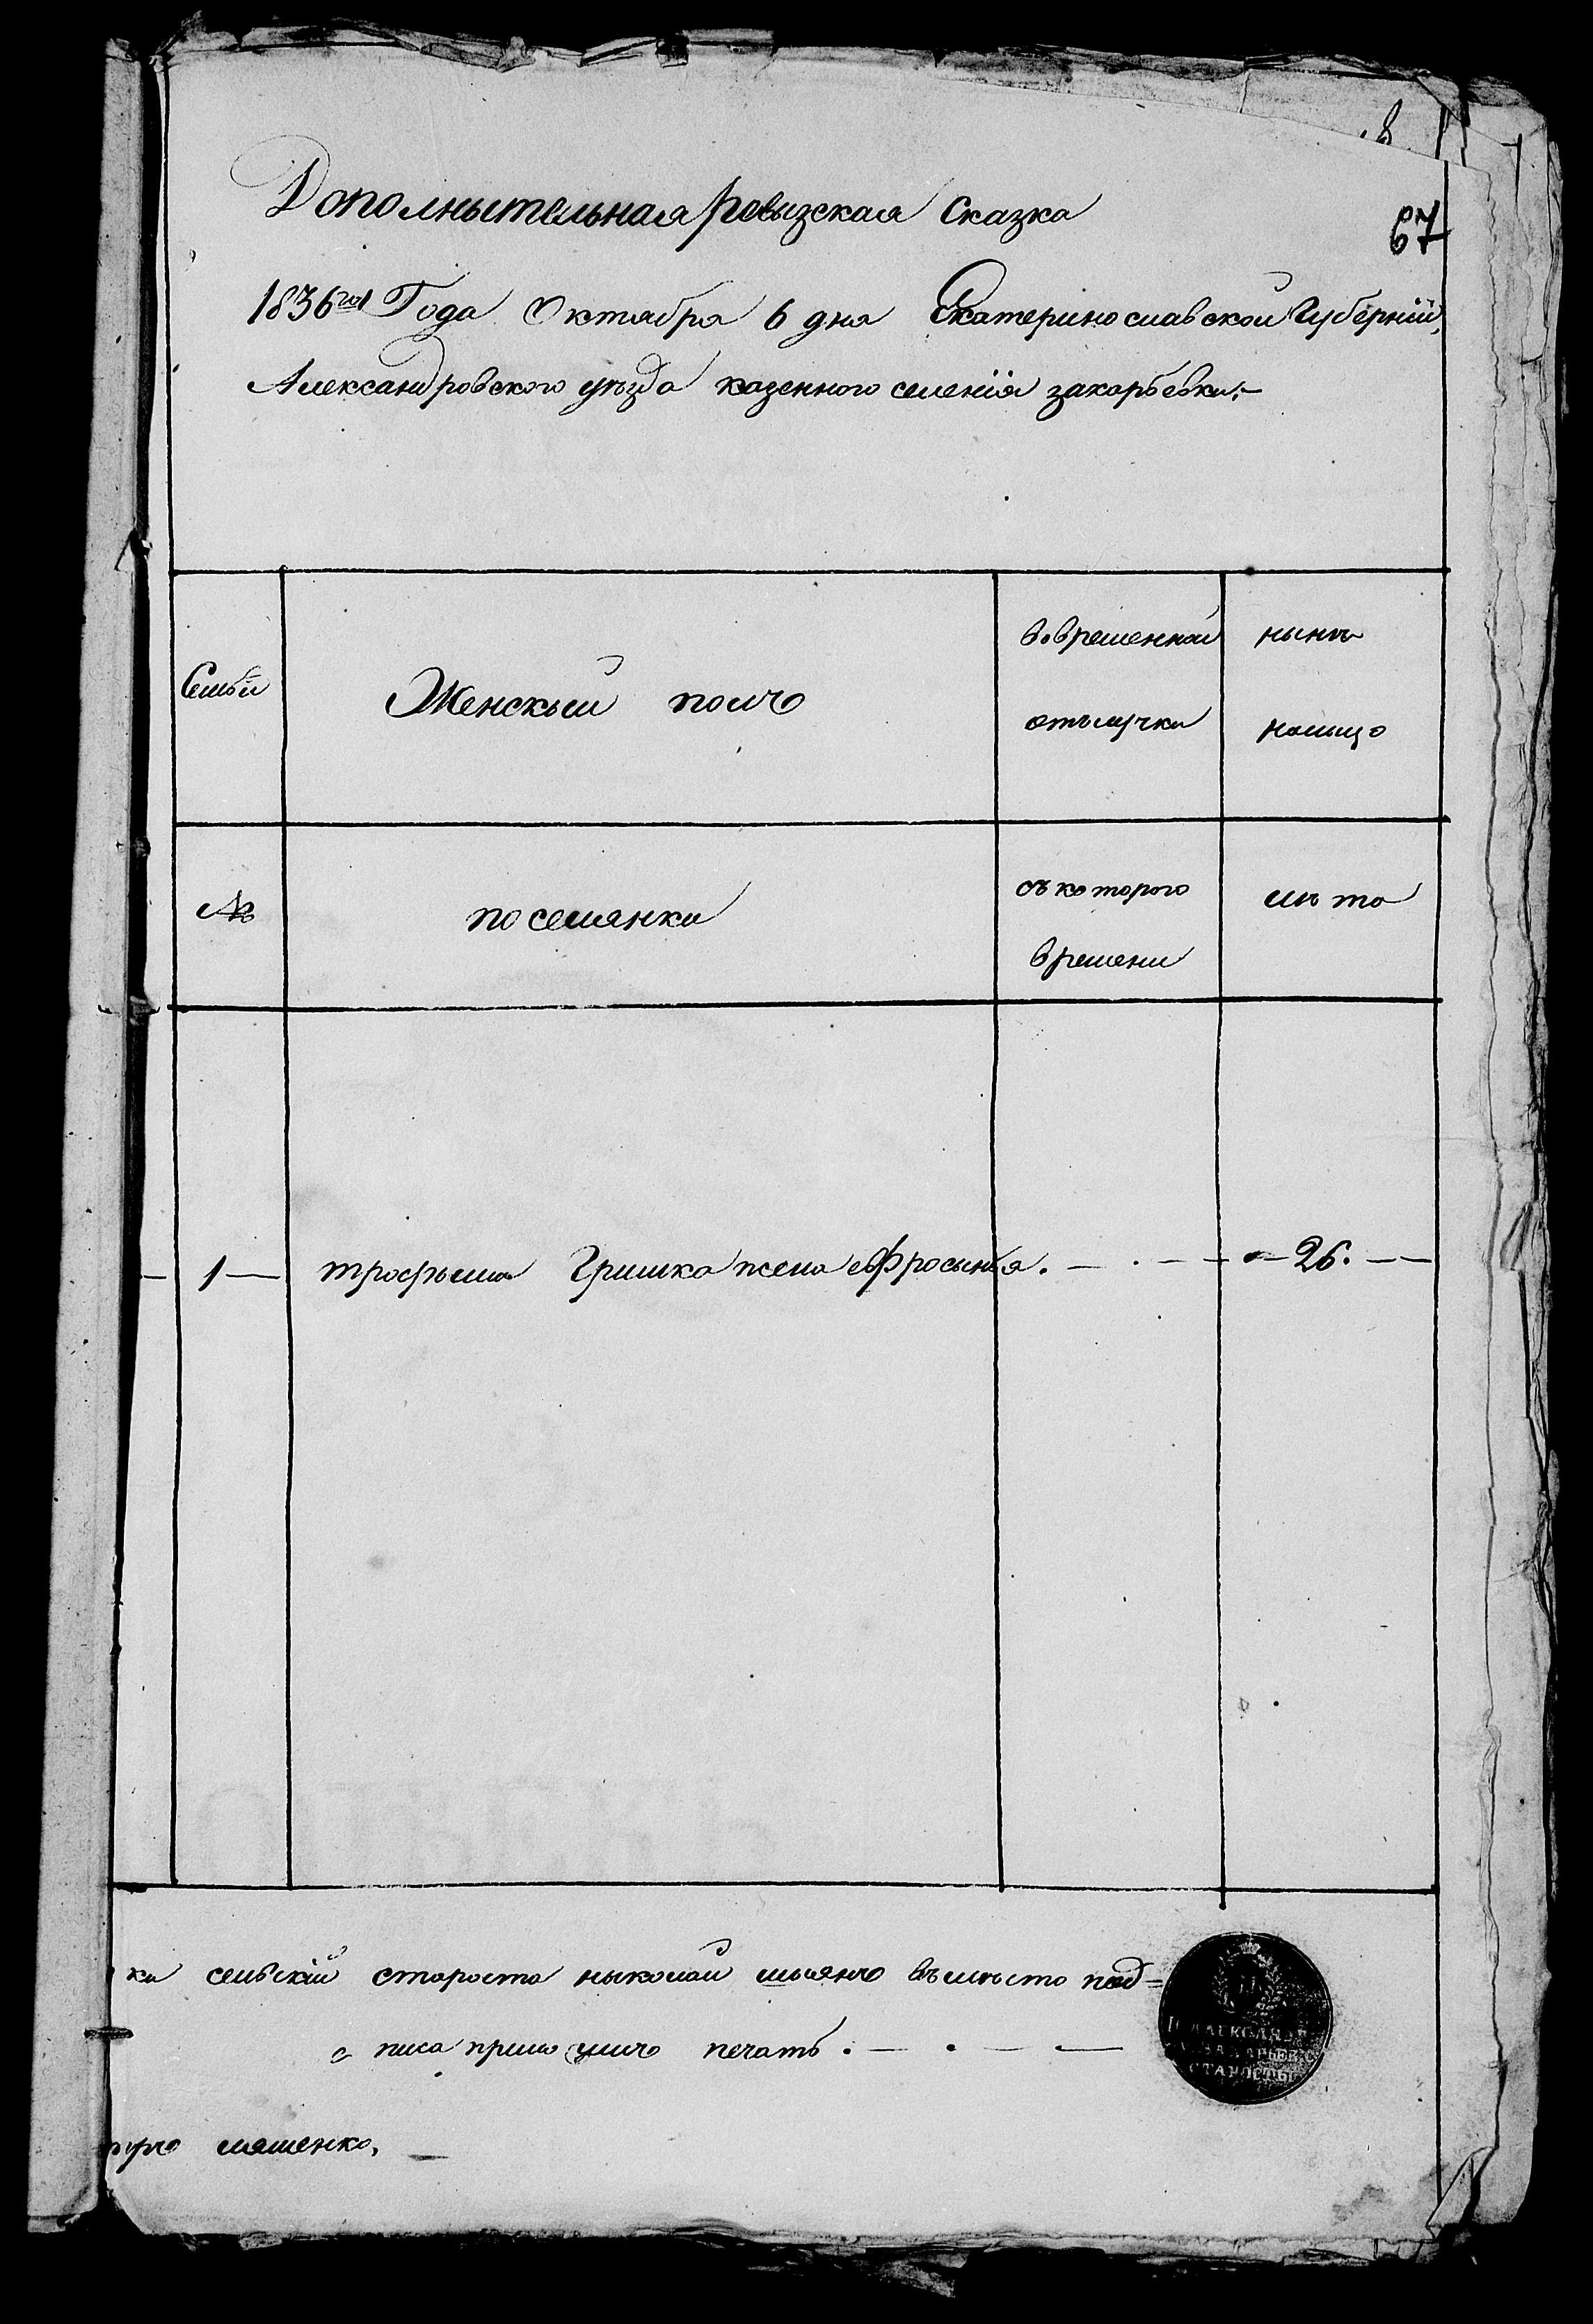 8
67
Дополнытельная ревызская Сказка
1836го Года Октября 6 дня Екатеринославской Губерніи,
Александровского уѣзда казенного селенія захарьевки.
Семьи
Женскый полъ
вовременной
отълучки
нынѣ
налыцо
№
поселянки
съкоторого
времени
лѣта
1 трофыма Гришка жена ефросынья. 26.
ки сельскій староста ныколай въмѣсто под=
писа печать.
ляшенко.
ЗАХАРЬЕВС
СТАРОСТЫ